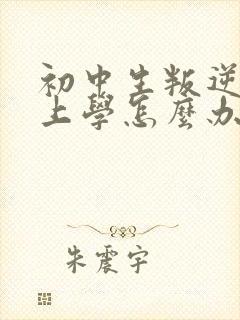 初中生叛逆
上學怎麼办
朱震宇